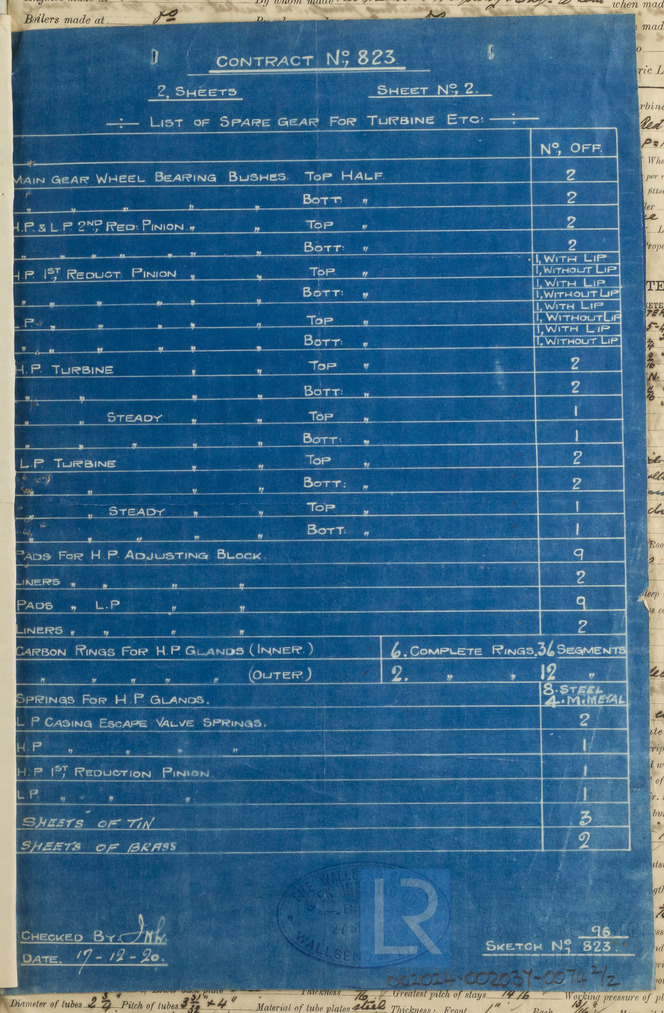 Boilers made at do
when made
CONTRACT No, 823.
2, SHEETS SHEET No, 2.
LIST OF SPARE GEAR FOR TURBINE ETC:
No, OFF.
MAIN GEAR WHEEL BEARING BUSHES. TOP HALF. 2
" " " " BOTT: " 2
H.P. & L P 2ND, RED: PINION " " TOP " 2
" " " " " " BOTT: " 2
H.P. 1ST, REDUCT: PINION " " TOP " 1, WITH LIP
1, WITHOUT LIP
" " " " " BOTT: " 1, WITH LIP
1, WITHOUT LIP
L.P. " " " " TOP " 1, WITH LIP
1, WITHOUT LIP
" " " " " BOTT: " 1, WITH LIP
1, WITHOUT LIP
H.P TURBINE " " TOP " 2
" " " " BOTT: " 2
" " STEADY " " TOP " 1
" " " " " BOTT: " 1
L.P TURBINE " " TOP " 2
" " " " BOTT: " 2
" " STEADY " " TOP " 1
" " " " " BOTT: " 1
PADS FOR H.P ADJUSTING BLOCK. 9
LINERS " " " " 2
PADS " L.P " " 9
LINERS " " " " 2
CARBON RINGS FOR H.P GLANDS (INNER.) 6. COMPLETE RINGS, 36 SEGMENTS
" " " " " (OUTER.) 2. " " 12 "
SPRINGS FOR H.P GLANDS. 8. STEEL
4. M. METAL
L P CASING ESCAPE VALVE SPRINGS. 2
H.P " " " " 1
H.P 1ST, REDUCTION PINION. 1
L P " " " 1
SHEETS OF TIN 3
SHEETS OF BRASS 2
WALLSEND
LR
CHECKED BY.
DATE. 17-12-20.
SKETCH No, 96/823.
002024-002037-0074 2/2
Diameter of tubes 2 3/4" Pitch of tubes
Material of tube plates steel Thickness: Front 1" Back
Thickness
Greatest pitch of stays
Working pressure of